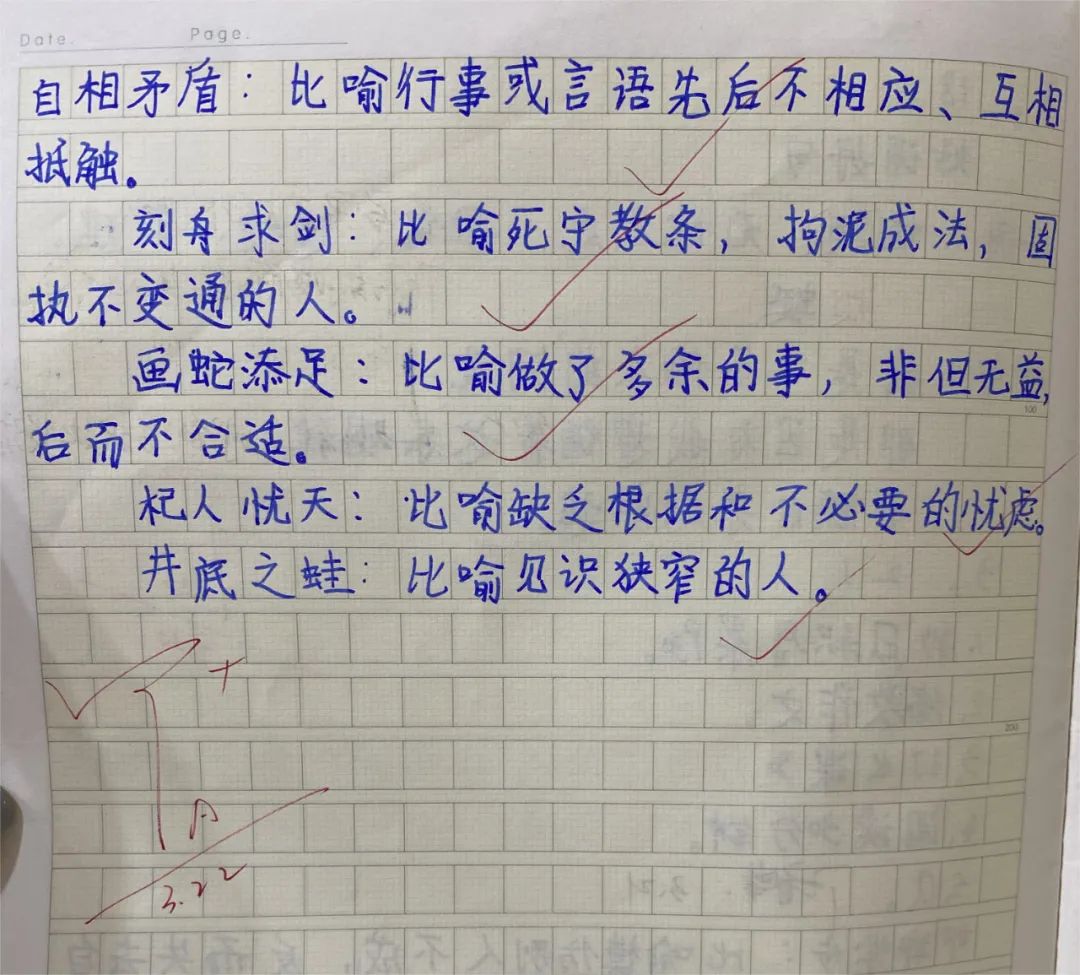 Date.
Page.
自相矛盾：比喻行事或言语先后不相应、互相
抵触。
刻舟求剑：比喻死守教条，拘泥成法，固
执不变通的人。
画蛇添足：比喻做了多余的事，非但无益，
后而不合适。
杞人忧天：比喻缺乏根据和不必要的忧虑。
井底之蛙：比喻见识狭窄的人。
100
200
A
3.22